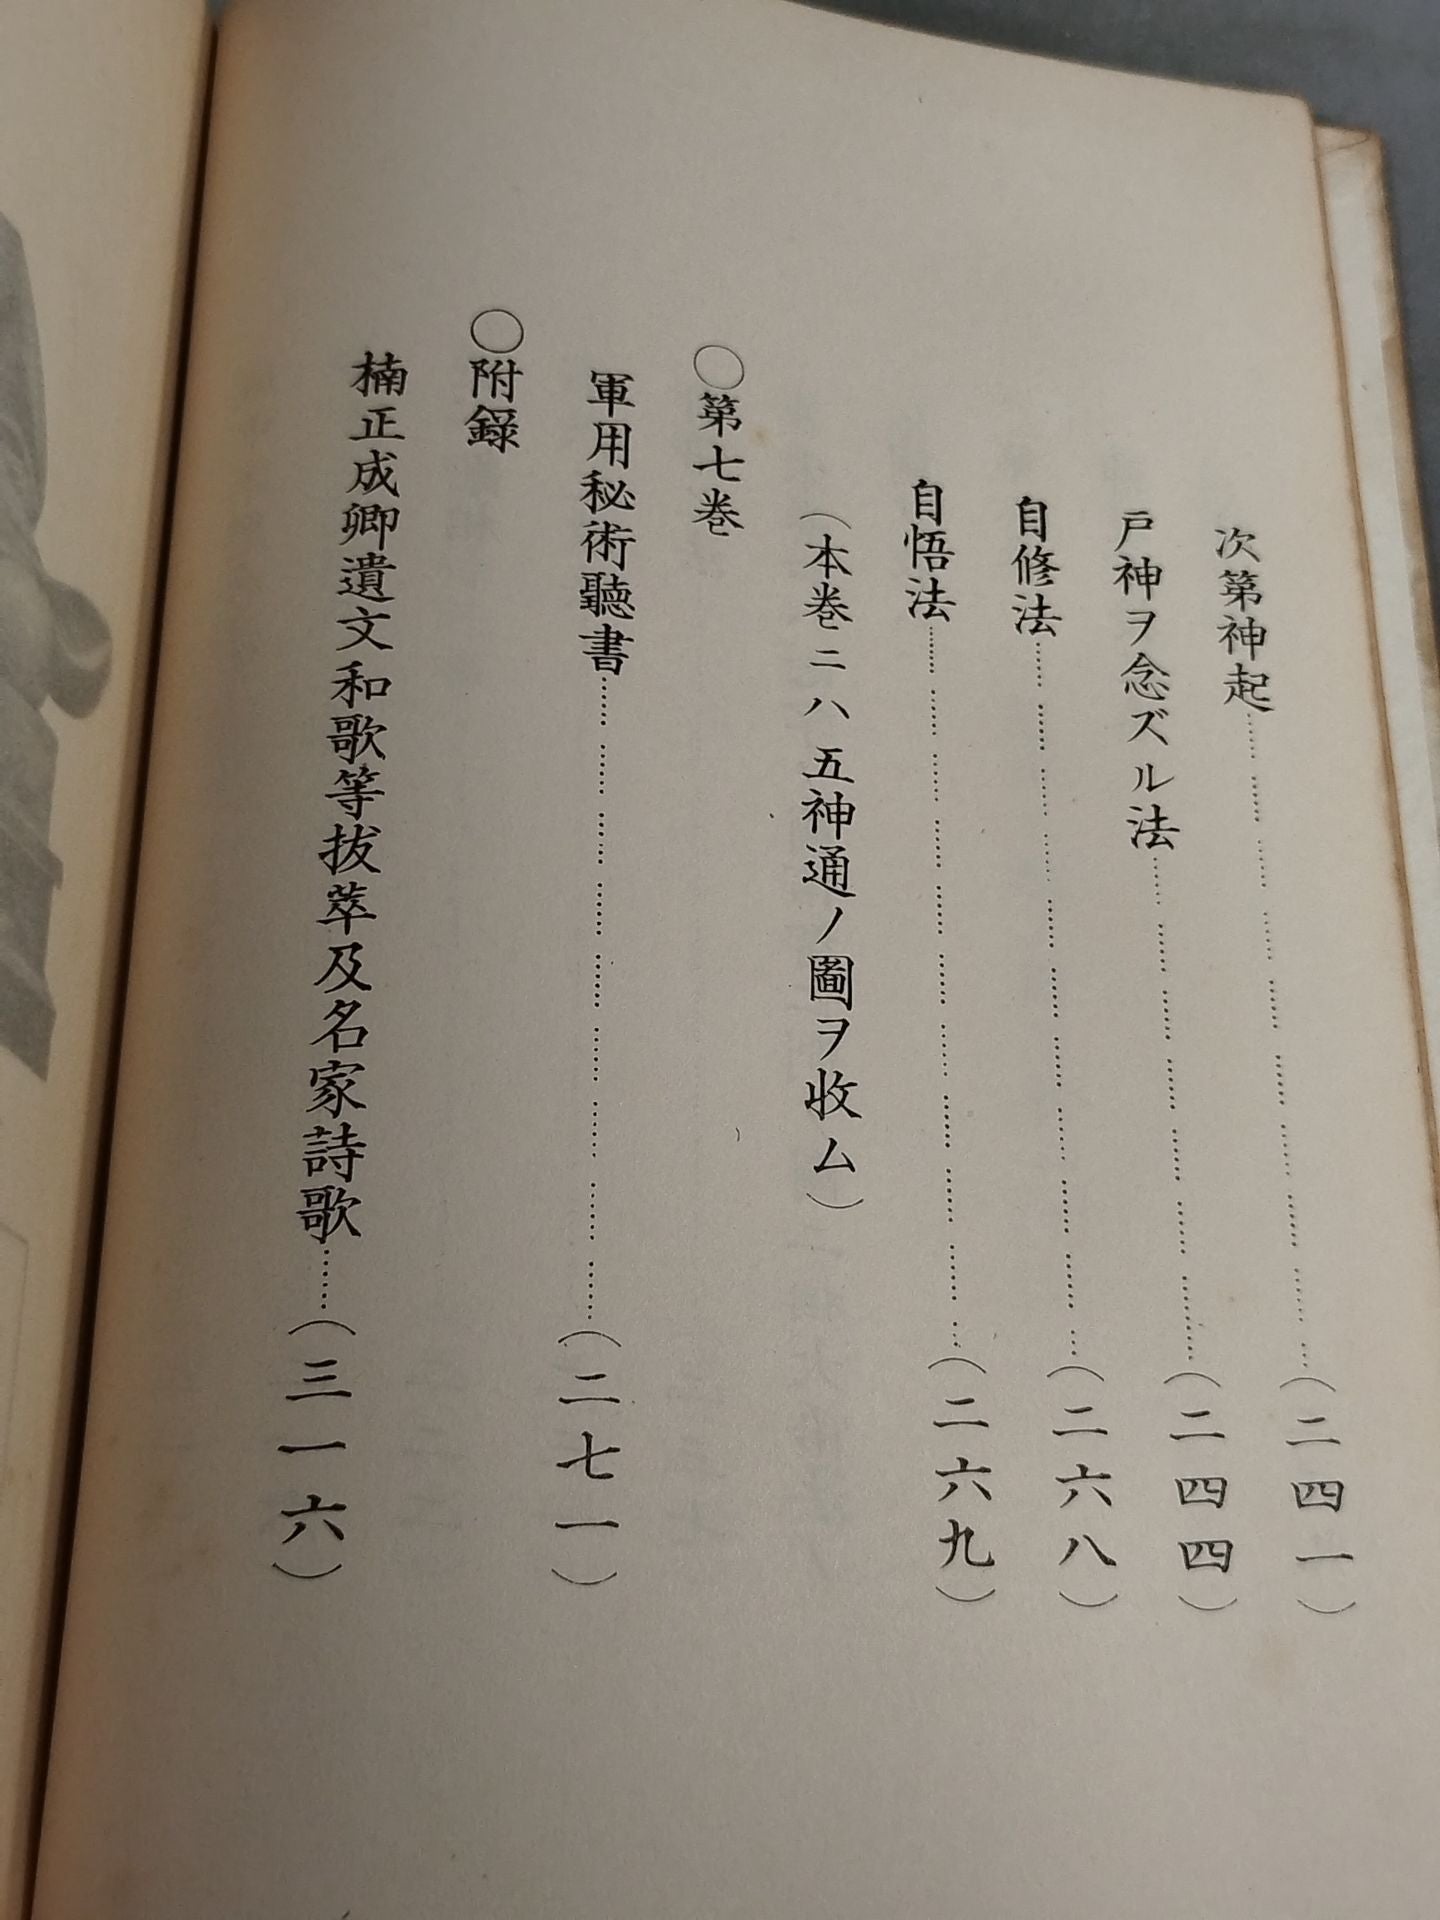 次第神起……………………………………(二四一)
戸神ヲ念ズル法……………………………(二四四)
自修法………………………………………(二六八)
自悟法………………………………………(二六九)
(本巻ニハ五神通ノ圖ヲ收ム)
○第七巻
軍用秘術聽書………………………………(二七一)
○附錄
楠正成卿遺文和歌等拔萃及名家詩歌……(三一六)